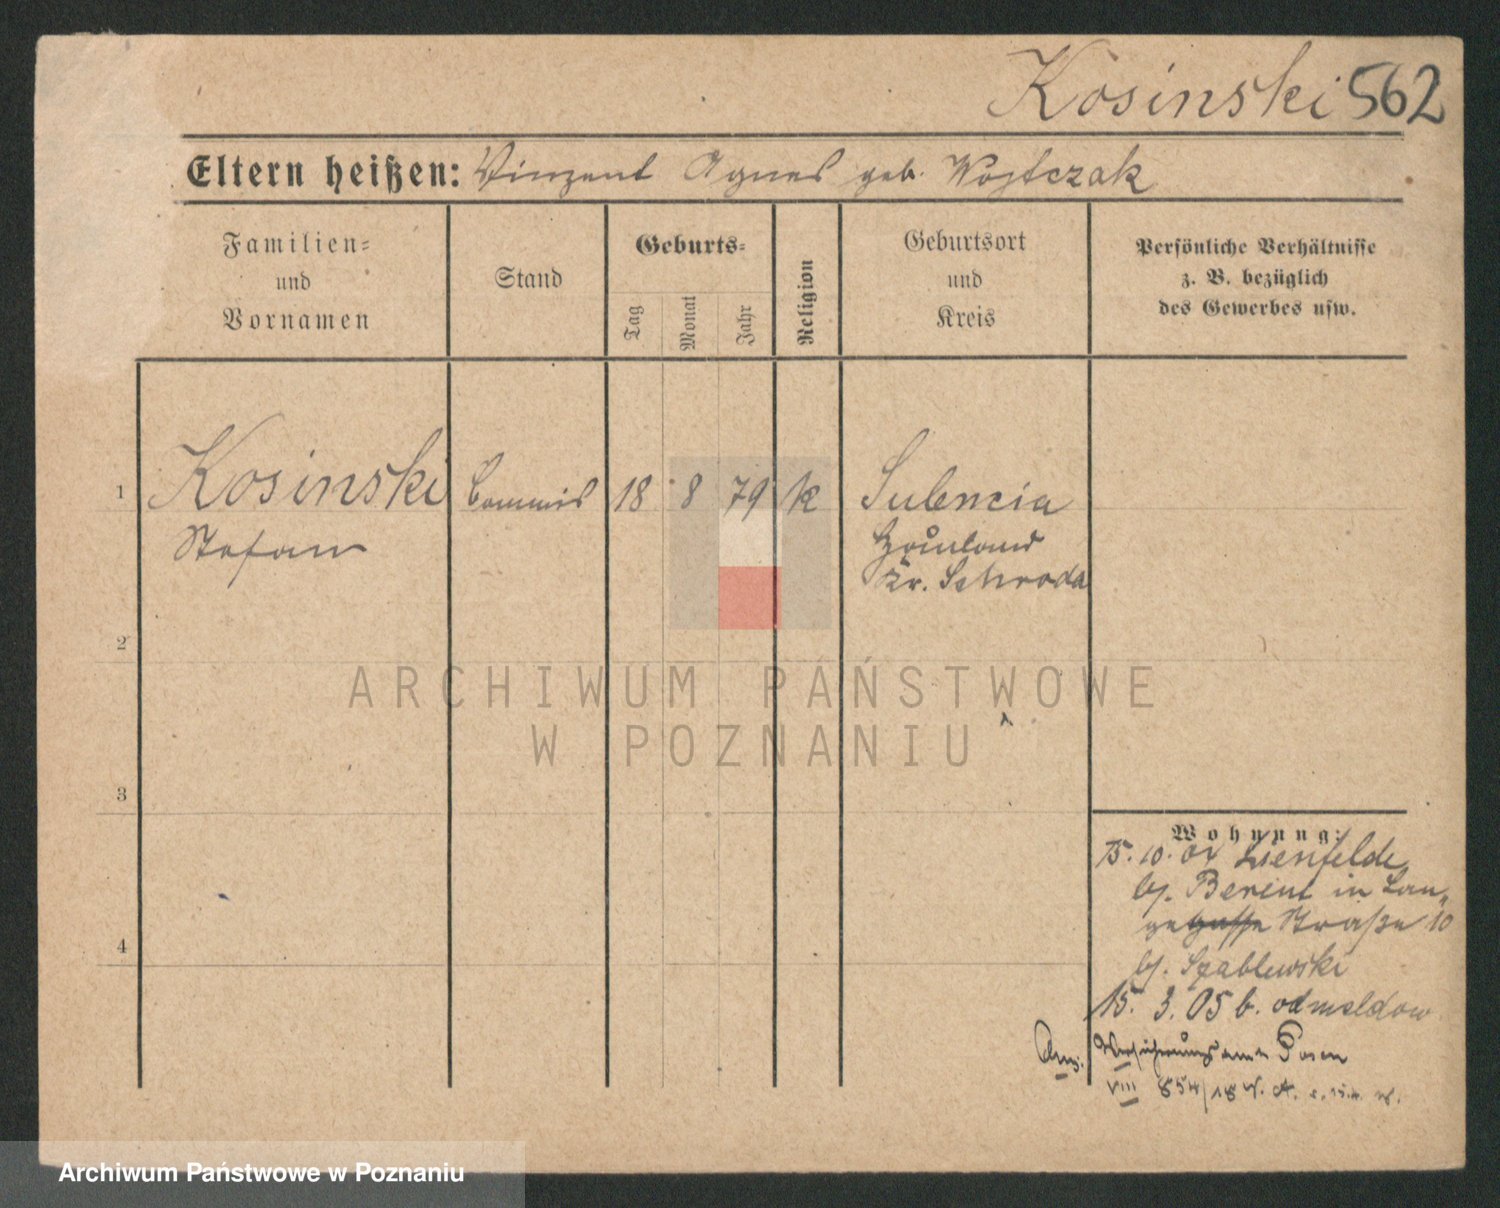 Kosinski 562
Eltern heißen: Vinzent Agnes geb. Wojtczak
Familien=
und
Vornamen
Stand
Geburts=
Tag
Monat
Jahr
Religion
Geburtsort
und
Kreis
Persönliche Verhältnisse
z. B. bezüglich
des Gewerbes usw.
1 Kosinski Commis 18 8 79 k Sulencia
Stefan
Kr. Schroda
2
ARCHIWUM PAŃSTWOWE
W POZNANIU
3
Wohnung:
15. 10. 04 Lienfelde
bj. Berent in Lan„
gegasse Straße 10
bj. Szablewski
4
15. 3. 05 b. odmeldow
Anz. Versicherungsamt Posen
VIII 854/18
Archiwum Państwowe w Poznaniu